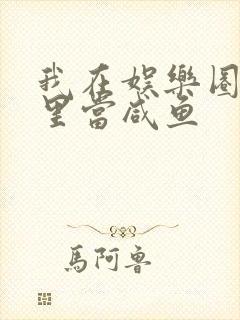 我在娱樂圈
里當咸鱼
馬阿魯